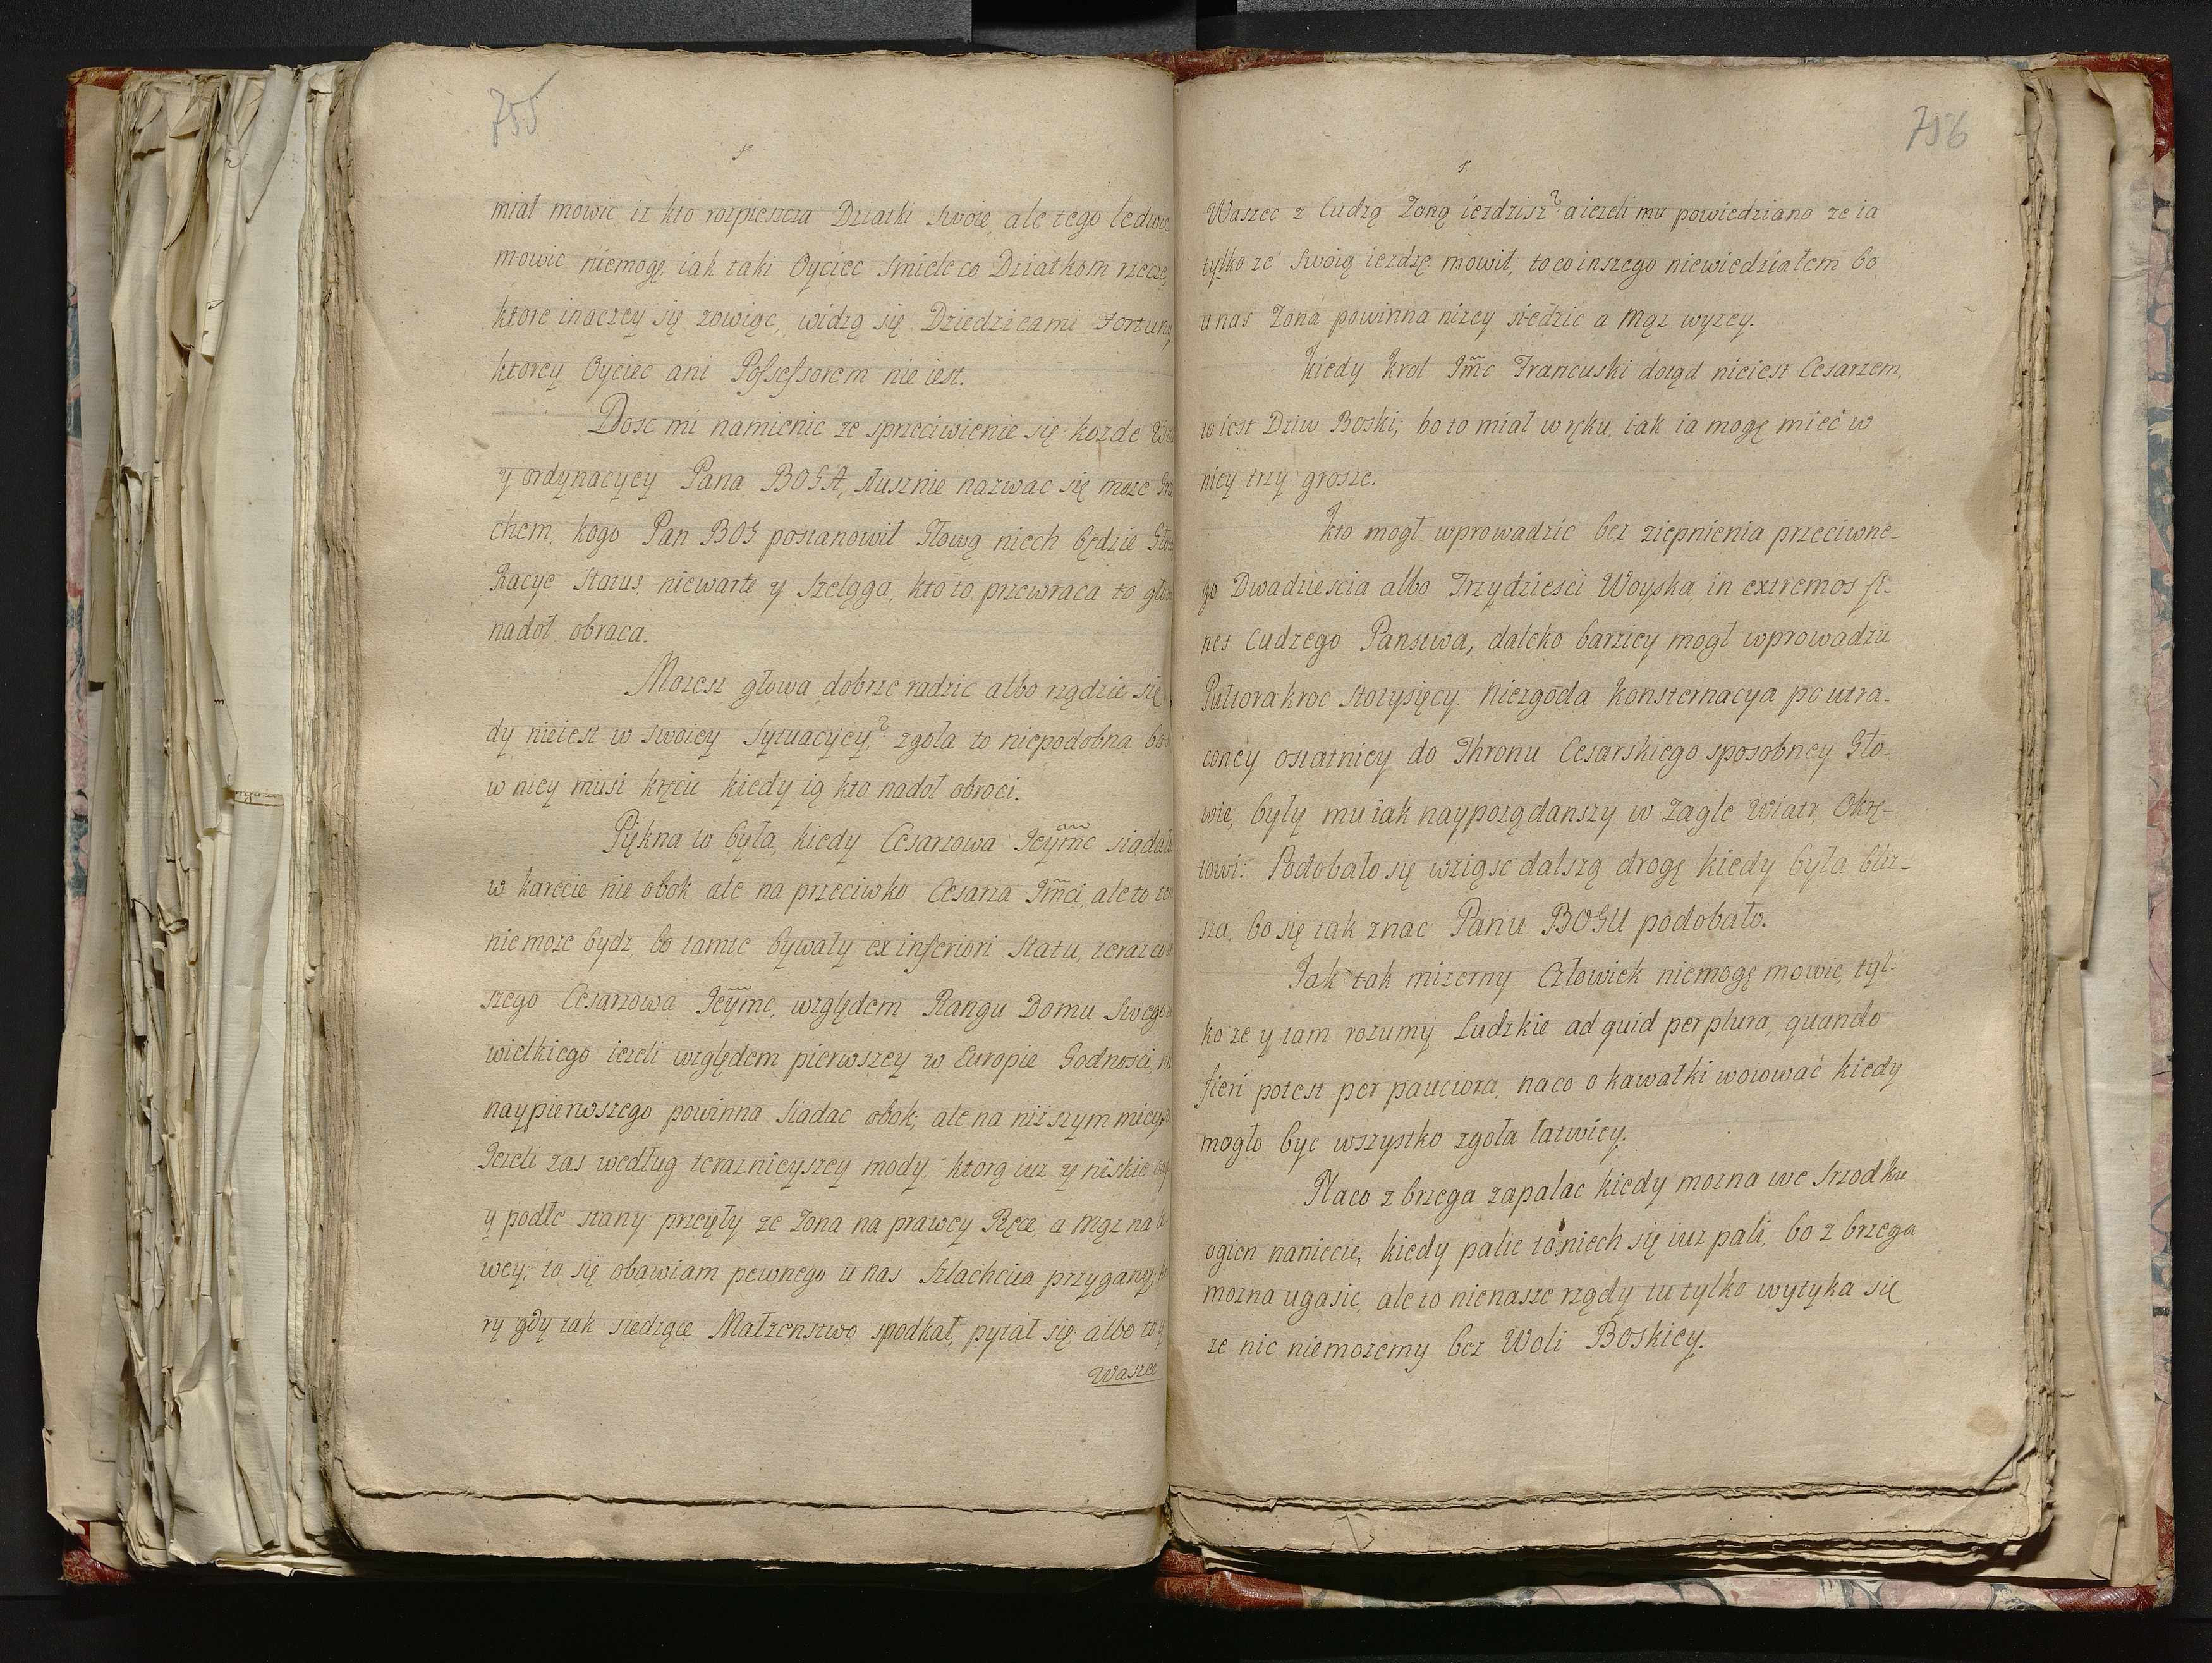 755
miał mowic iz kto rozpieszcza Dziatki swoie, ale tego ledwie
mowic niemogę, iak taki Oyciec smiele co Dziatkom rzecze,
ktore inaczey się zowiąc, widzą się Dziedzicami Fortuny
ktorey Oyciec ani Possessorem nie iest.
Dosc mi namienic ze sprzeciwienie się kozde
y ordynacyey Pana BOGA, słusznie nazwac się moze
chem, kogo Pan BOG postanowił Głową niech będzie
Racye Status niewarte y szeląga, kto to przewraca to
nadoł obraca.
Mozesz głowa dobrze radzic albo rządzic się
dy nieiest w swoiey Sytuacyey? zgoła to niepodobna
w niey musi kręcic kiedy ią kto nadoł obroci.
Piękna to była, kiedy Cesarzowa Jeymc siadała
w karecie nie obok ale na przeciwko Cesarza Jmci, ale to
nie moze bydz, bo tamte bywały ex inferiori Statu, teraz
szego Cesarzowa Jeymc, względem Rangu Domu Swego
wielkiego iezeli względem pierwszey w Europie Godnosci,
naypierwszego powinna siadac obok, ale na niższym
Jezeli zas według teraznieyszey mody, ktorą iuz y niskie
y podłe stany przeięły ze Zona na prawey Ręce, a Mąz na
wey, to się obawiam pewnego u nas Szlachcica przygany,
ry gdy tak siedzące Małzenstwo spodkał, pytał się albo to
Waszec
756
Waszec z Cudzą Zoną iezdzisz? a iezeli mu powiedziano ze ia
tylko ze swoią iezdzę mowił, to co inszego niewiedziałem bo
u nas Zona powinna nizey siedzic a Mąz wyzey.
Kiedy Krol Jmc Francuski dotąd nieiest Cesarzem,
to iest Dziw Boski, bo to miał w ręku, iak ia mogę mieć w
niey trzy grosze.
Kto mogł wprowadzic bez ziepnienia przeciwne-
go Dwadziescia albo Trzydziesci Woyska in extremos fi-
nes Cudzego Panstwa, daleko barziey mogł wprowadzic
Pułtora kroc stotysięcy. Niezgoda Konsternacya po utra-
coney ostatniey do Thronu Cesarskiego sposobney Gło-
wie, były mu iak naypoządanszy w Zagle Wiatr, Okrę-
towi. Podobało się wziąsc dalszą drogę kiedy była bliz-
sza, bo się tak znac Panu BOGU podobało.
Jak tak mizerny Człowiek niemogę mowic, tyl-
ko ze y tam rozumy Ludzkie ad quid per plura, quando
fieri potest per pauciora, naco o kawałki woiować kiedy
mogło byc wszystko zgoła łatwiey.
Naco z brzega zapalac kiedy mozna we srzodku
ogien naniecic, kiedy palic to niech się iuz pali, bo z brzega
mozna ugasic, ale to nienasze rządy tu tylko wytyka się
ze nic niemozemy bez Woli Boskiey.